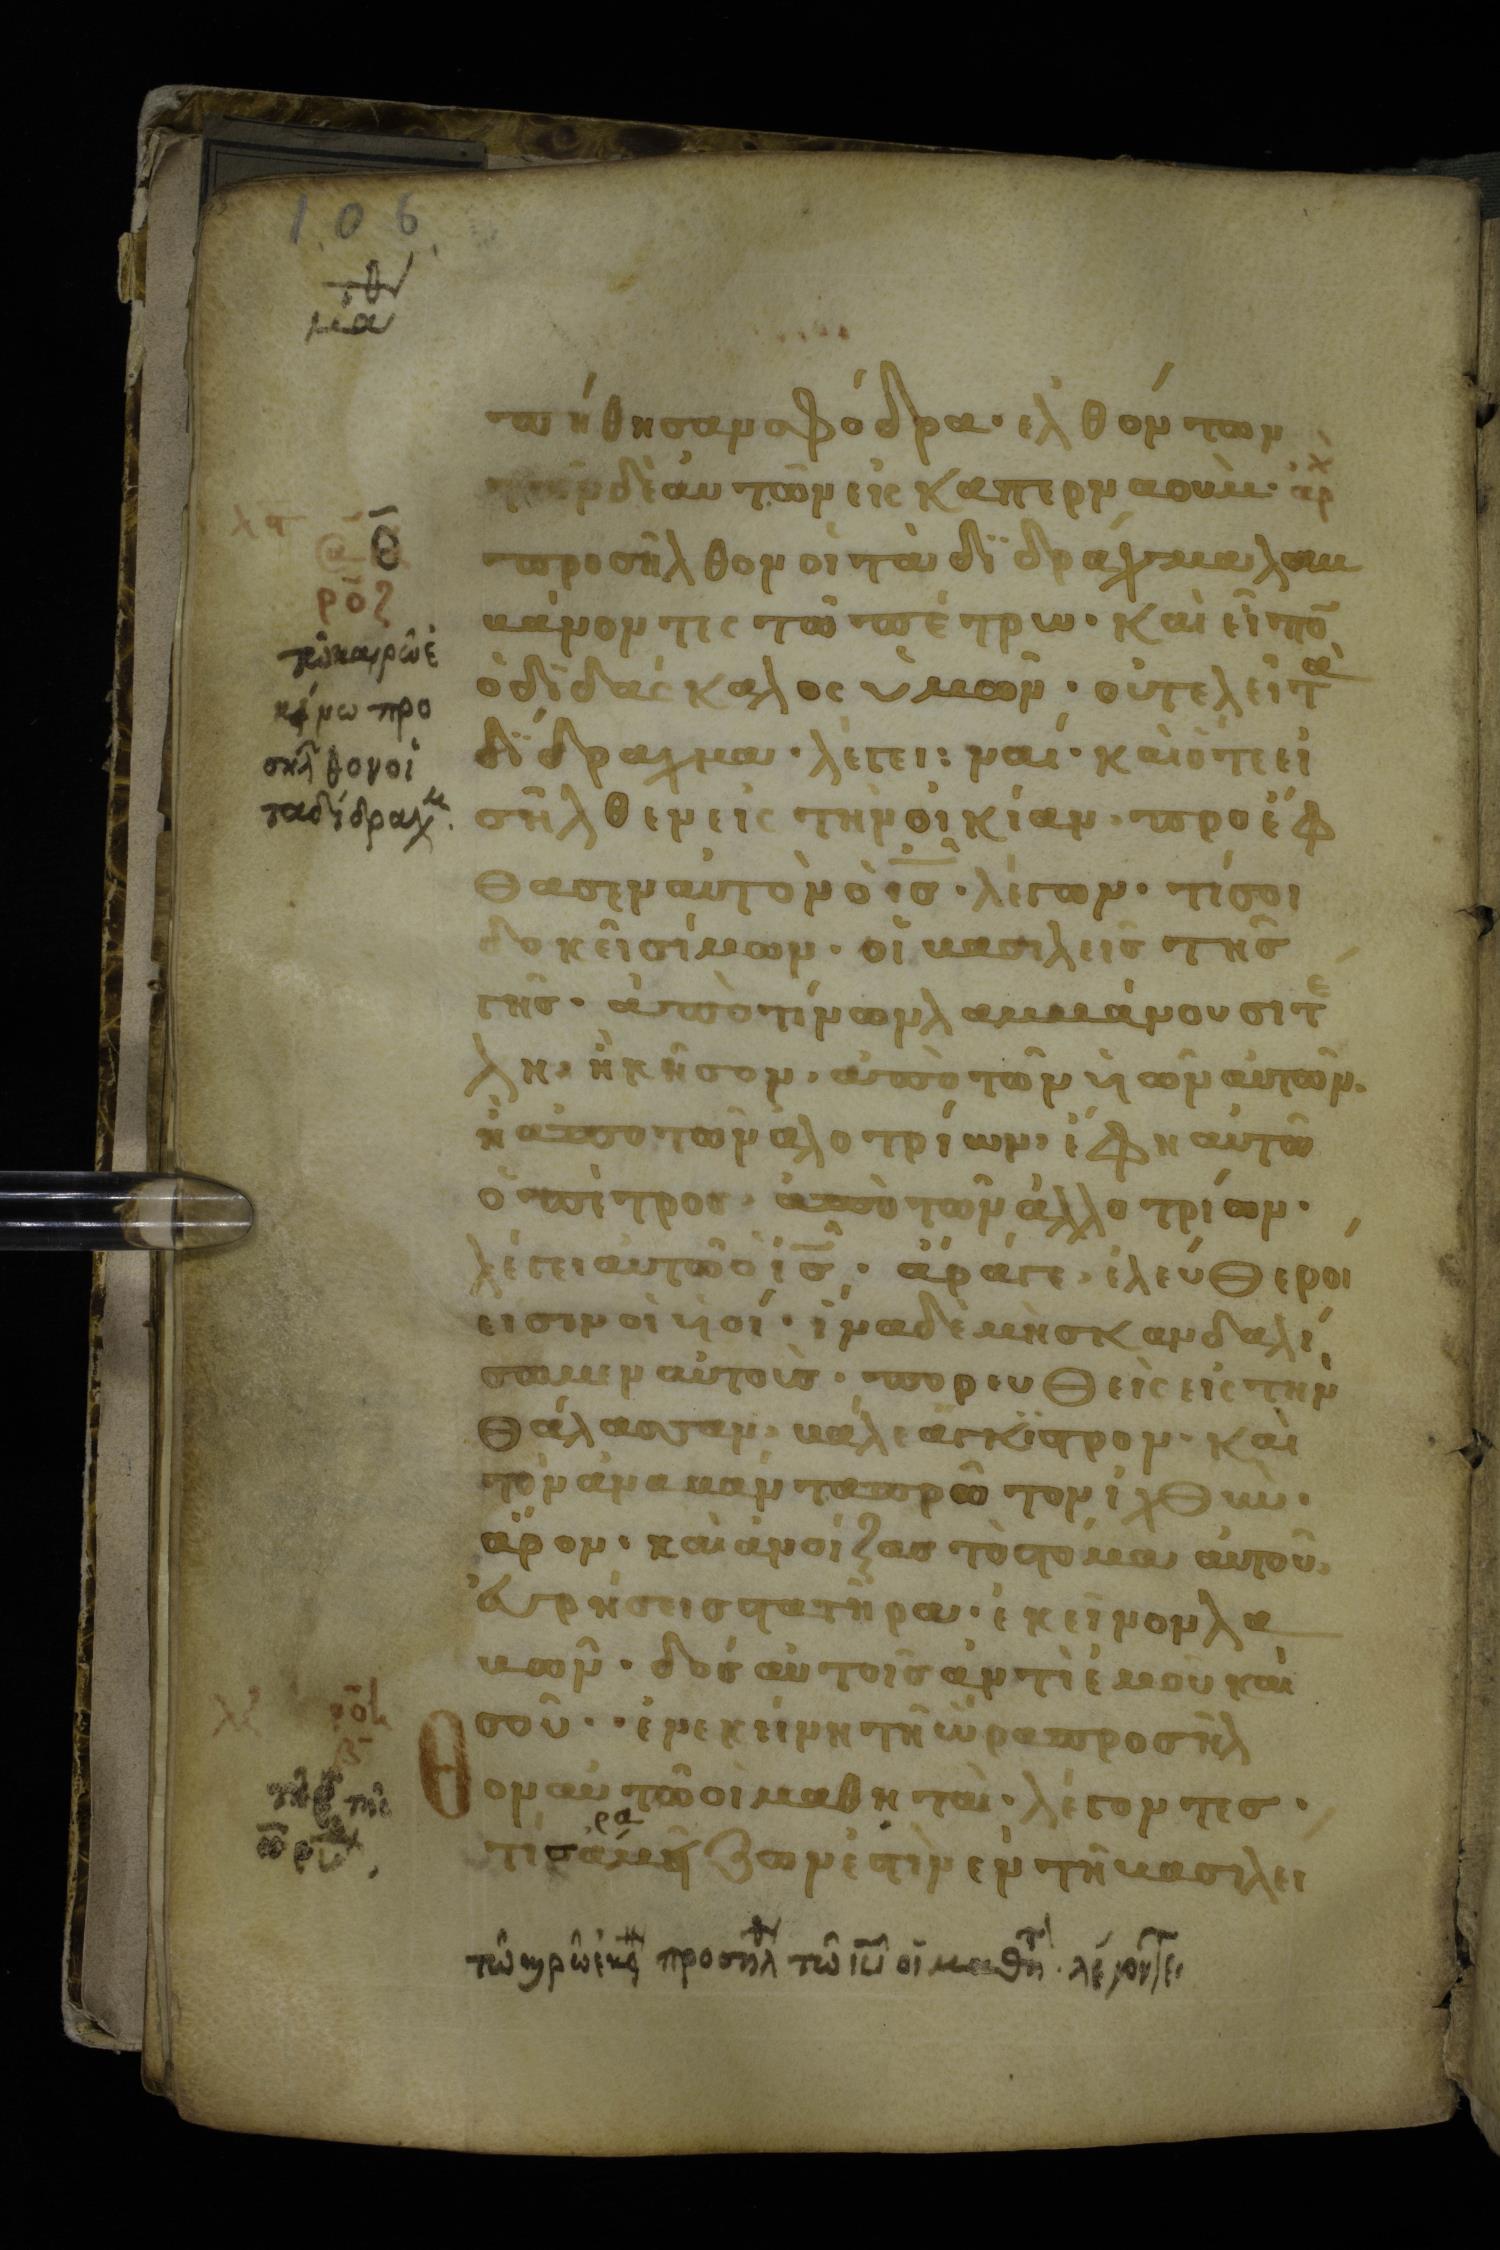 106
πήθησαν σφόδρα· ἐλθόντων
δὲ αὐτῶν εἰς καπερναοὺμ· ἀρχ
προσῆλθον οἱ τὰ δίδραχμα λαμ
βάνοντες τῶ πέτρω· καὶ εἶπο̄
ὁ διδάσκαλος ὑμῶν· οὐ τελεῖ τὰ
δίδραχμα· λέγει: ναί· καὶ ὅτε εἰ
σῆλθεν εἰς τὴν οἰκίαν· προέφ
θασεν αὐτὸν ὁ ις̄· λέγων· τί σοι
δοκεῖ σίμων· οἱ βασιλεῖς τῆς
γῆς· ἀπὸ τίνων λαμβάνουσι τέ
λη· ἢ κῆνσον· ἀπὸ τῶν ὑιῶν αὐτῶν·
ἢ ἀπὸ τῶν ἀλοτρίων· ἔφη αὐτῶ
ὁ πέτρος· ἀπὸ τῶν ἀλλοτρίων·
λέγει αὐτῶ ὁ ις̄· ἄρά γε· ἐλεύθεροί
εἰσιν οἱ ὑιοί· ἵνα δὲ μὴ σκανδαλί
σωμεν αὐτούς· πορευθεὶς εἰς τὴν
θάλασσαν· βάλε ἄγκιστρον· καὶ
τὸν ἀναβάντα πρῶτον ἰχθὺν·
ἆρον· καὶ ἀνοίξας τὸ στόμα αὐτοῦ·
εὑρήσεις στατῆρα· ἐκεῖνον λα
βὼν· δὸς αὐτοῖς ἀντὶ ἐμοῦ καὶ
σοῦ·· ἐν ἐκείνη τῆ ὥρα προσῆλ
θον αὐτῶ οἱ μαθηταὶ· λέγοντες·
τίς ἄρα μείζων ἐστὶν ἐν τῆ βασιλεί
ρο̄ς
τῶ καιρῶ ἐ
κείνω προ
σῆλθον οἱ
τα δίδραχμ
τῶ καιρῶ ἐκείν προσῆλθ τῶ ιῦ οἱ μαθητ· λέγοντε·